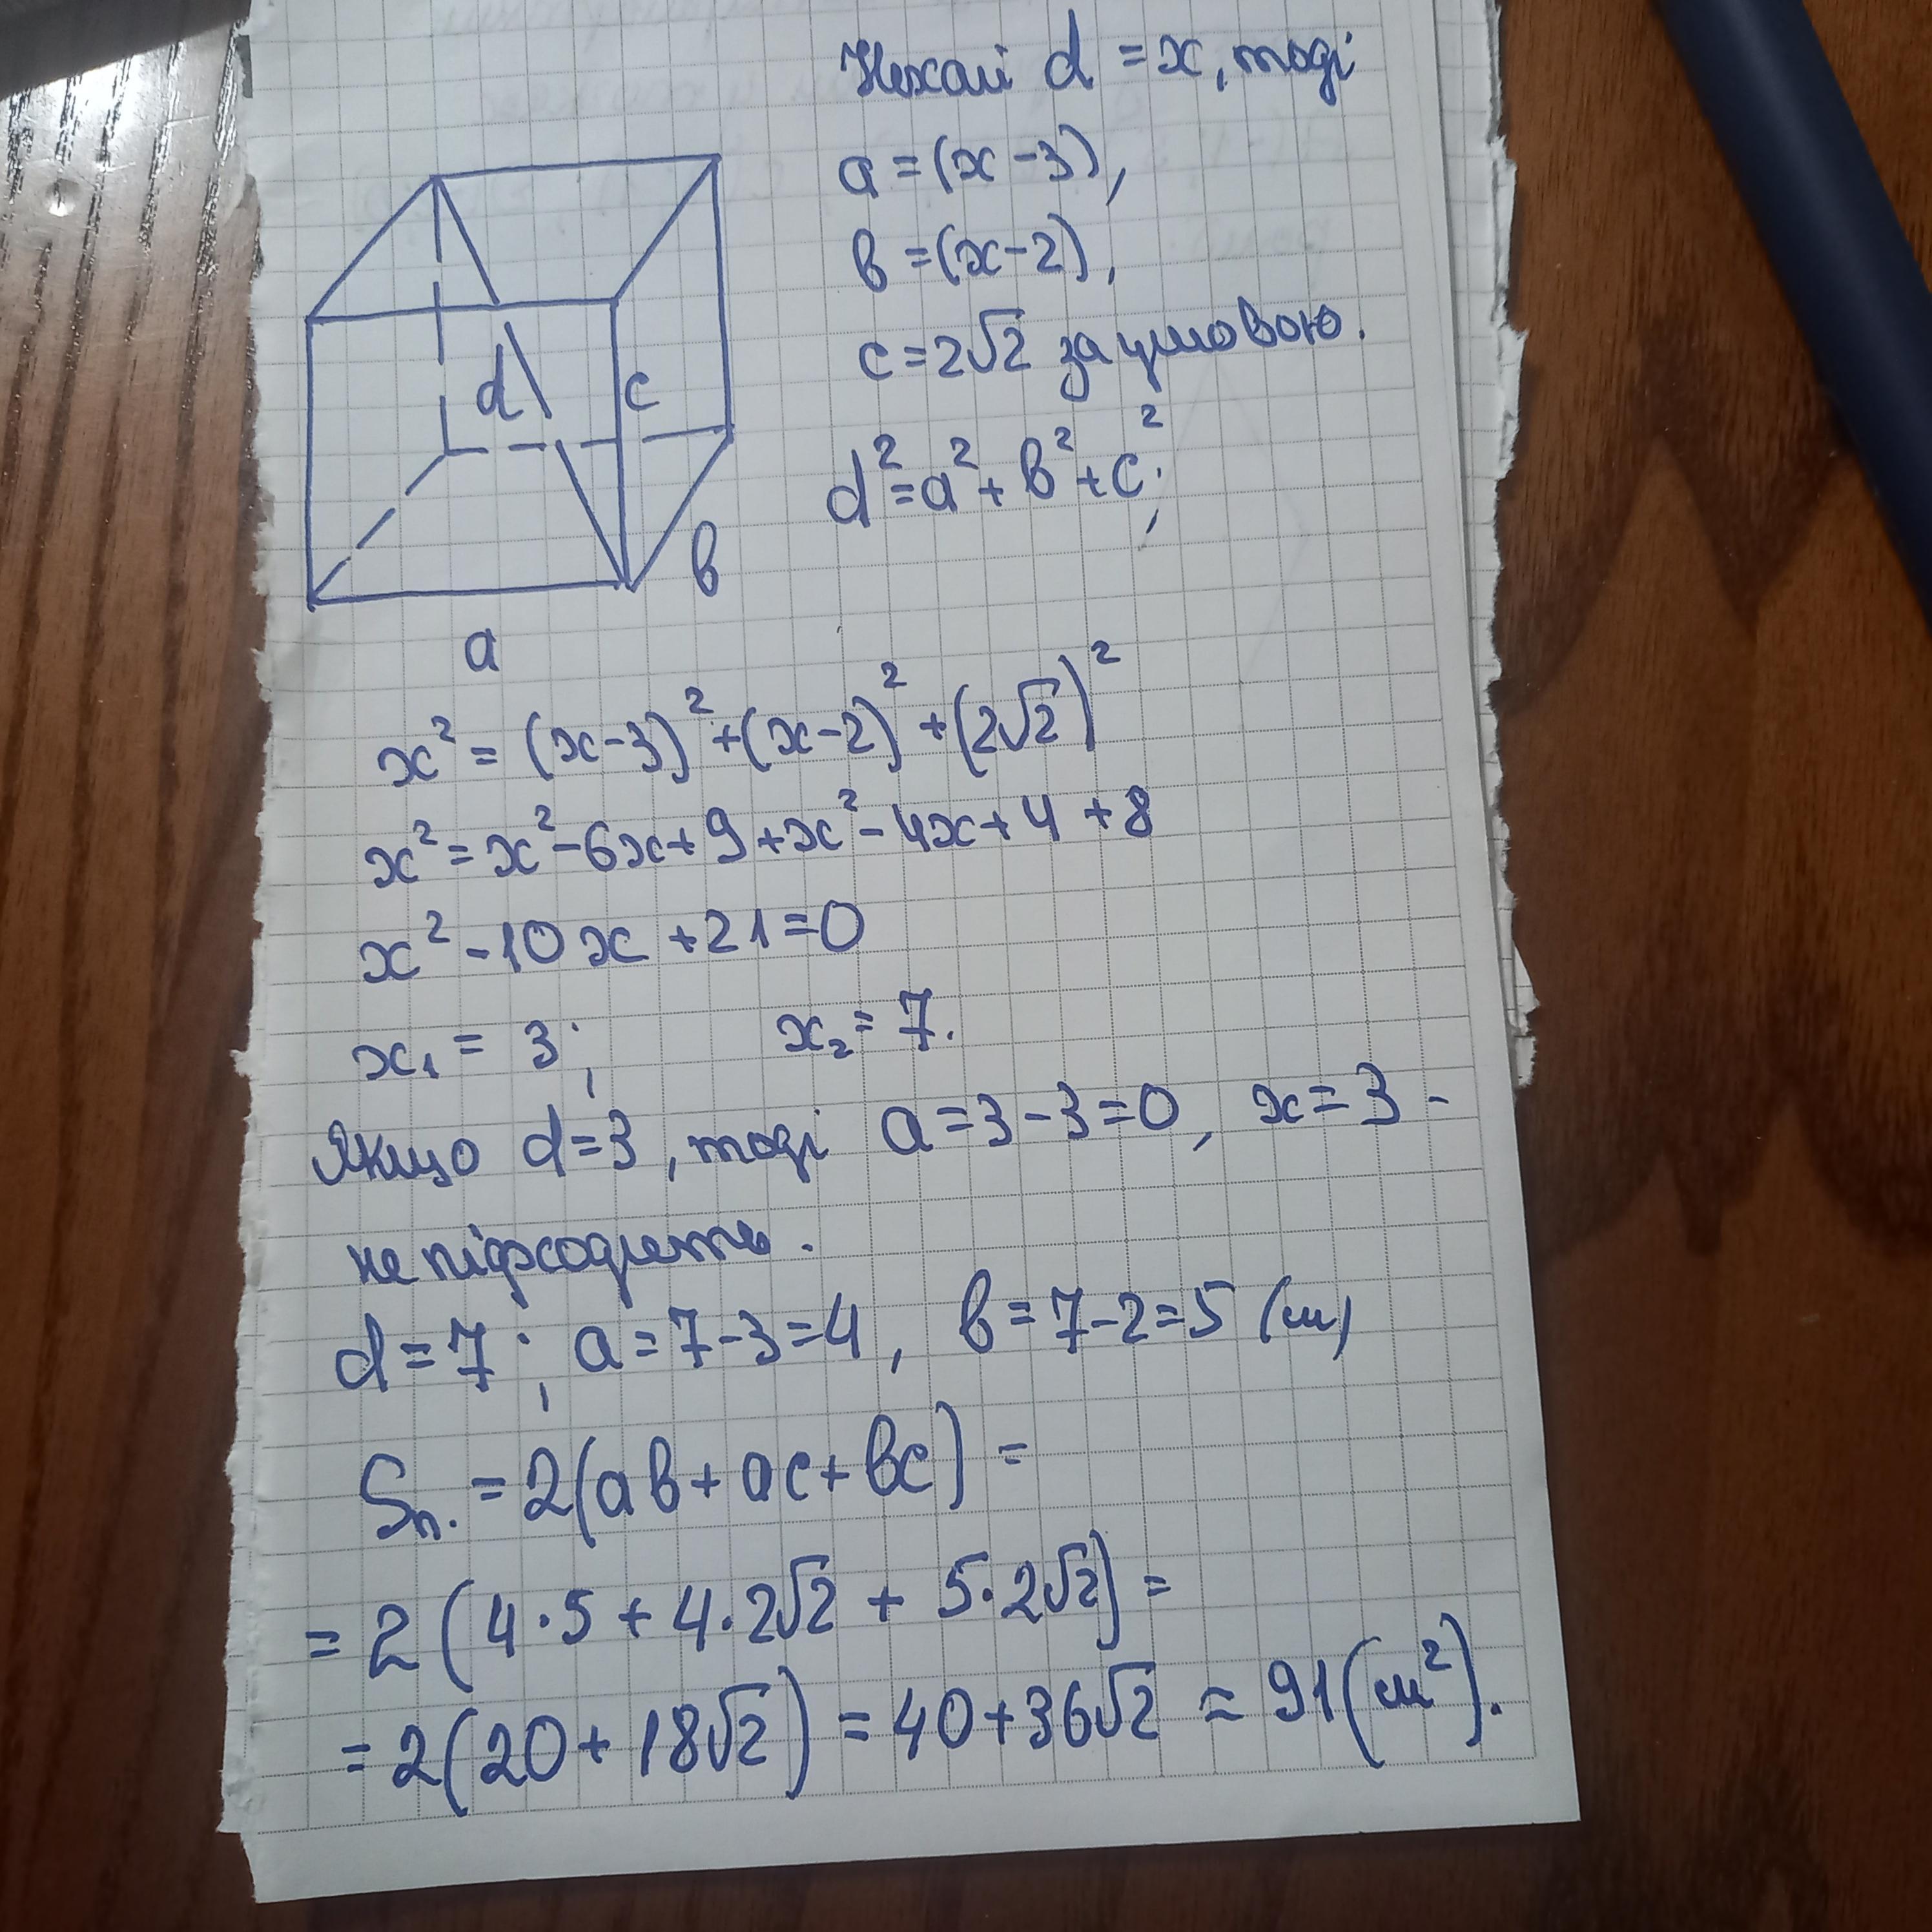 Нехай d = x, тоді
a = (x - 3),
в = (x - 2),
c = 2√2 за умовою.
d² = a² + в² + c²;
d
c
в
a
x² = (x-3)² + (x-2)² + (2√2)²
x² = x² - 6x + 9 + x² - 4x + 4 + 8
x² - 10x + 21 = 0
x₁ = 3; x₂ = 7.
Якщо d = 3, тоді a = 3 - 3 = 0, x = 3 -
не підходить.
d = 7; a = 7 - 3 = 4, в = 7 - 2 = 5 (см)
Sп. = 2(aв + ac + вc) =
= 2(4·5 + 4·2√2 + 5·2√2) =
= 2(20 + 18√2) = 40 + 36√2 ≈ 91 (см²).